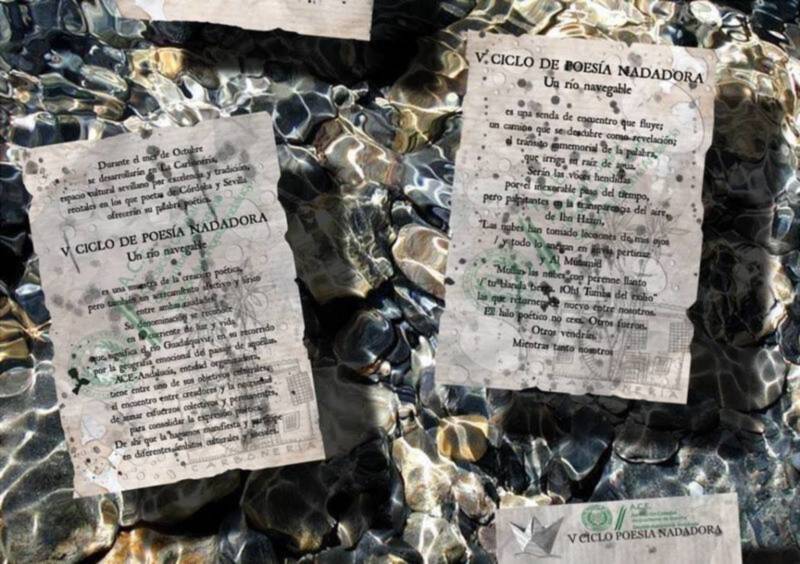 Durante el mes de Octubre
se desarrollarán en La Carbonería,
espacio cultural sevillano por excelencia y tradición,
recitales en los que poetas de Córdoba y Sevilla
ofrecerán su palabra poética.
V CICLO DE POESÍA NADADORA
Un río navegable
es una muestra de la creación poética,
pero también un acercamiento afectivo y lírico
entre ambas ciudades.
Su denominación se reconoce
en la corriente de luz y vida,
que significa el río Guadalquivir, en su recorrido
por la geografía emocional del paisaje de aquéllas.
ACE-Andalucía, entidad organizadora,
tiene entre uno de sus objetivos culturales,
el encuentro entre creadores y la necesidad
de aunar esfuerzos colectivos y permanentes,
para consolidar la expresión poética.
De ahí que la hagamos manifiesta y partícipe
en diferentes ámbitos culturales y sociales.
CARBONERIA
V CICLO DE POESÍA NADADORA
Un río navegable
es una senda de encuentro que fluye;
un camino que se descubre como revelación;
el tránsito inmemorial de la palabra,
que irriga en raíz de agua.
Serán las voces hendidas
por el inexorable paso del tiempo,
pero palpitantes en la transparencia del aire,
de Ibn Hazm,
"Las nubes han tomado lecciones de mis ojos
/ y todo lo anegan en lluvia pertinaz
Al Mutamid
"Mullan las nubes con perenne llanto
/ tu blanda tierra, ¡Oh! Tumba del exilio"
las que retornen de nuevo entre nosotros.
El halo poético no cesa. Otros fueron.
Otros vendrán.
Mientras tanto nosotros
A.C.E.
V CICLO POESIA NADADORA